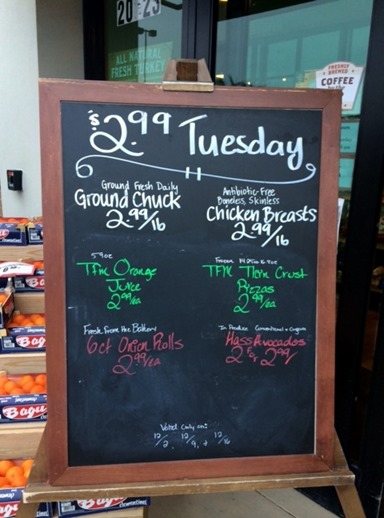 2023
ALL NATURAL
FRESH TURKEY
FRESHLY
BREWED
COFFEE
$2.99 Tuesday
Ground Fresh Daily
Ground Chuck
2.99/lb
Antibiotic-Free
Boneless, Skinless
Chicken Breasts
2.99/lb
59oz
TFM Orange
Juice
2.99/ea
Frozen
TFM Thin Crust
Pizzas
2.99/ea
Fresh From the Bakery
6ct Onion Rolls
2.99/ea
In Produce Conventional + Organic
Hass Avocados
2 for 2.99/
Valid Only on:
12/2, 12/9, + 12/16
Bagu
Bagu